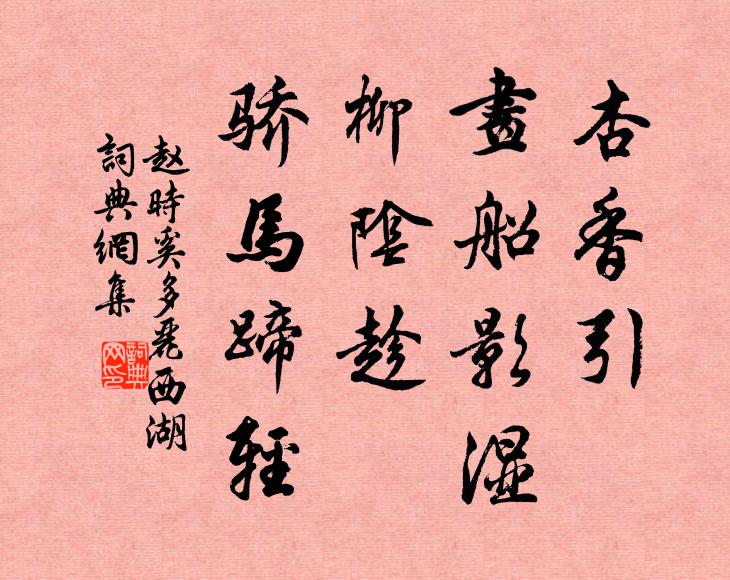 杏香引
畫船影濕
柳陰趁
骄馬蹄輕
赵時奚多麗西湖
詞典網集
詞典網印